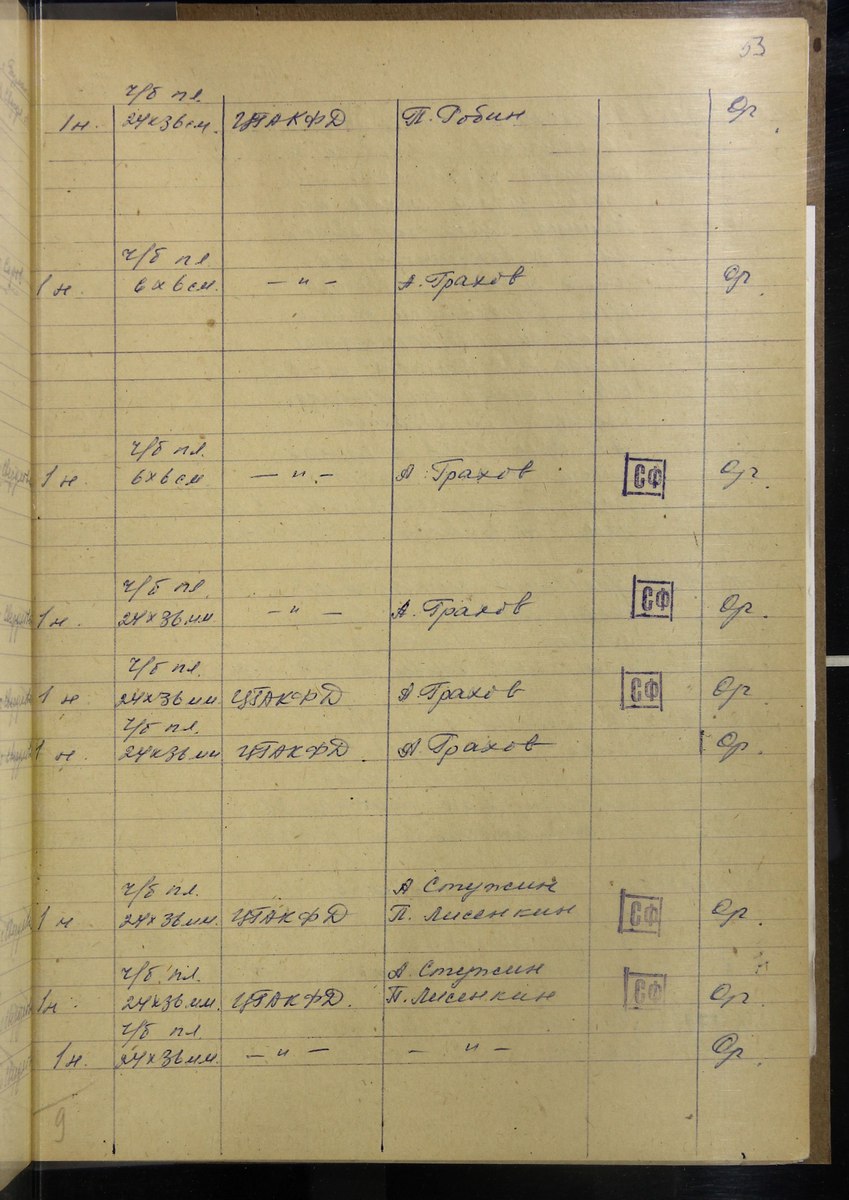 53
ч/б пл.
1н. 24х36см. ЦГАКФД П. Робин Ор.
ч/б пл
1 н. 6х6см. — " — А. Грахов Ор.
ч/б пл.
1 н. 6х6см — " — А. Грахов СФ Ор.
ч/б пл.
1н. 24х36мм — " — А. Грахов СФ Ор.
ч/б пл.
1 н 24х36мм ЦГАКФД А Грахов СФ Ор.
ч/б пл.
1 н. 24х36мм ЦГАКФД А Грахов Ор.
ч/б пл. А Стужин
1 н 24х36мм. ЦГАКФД П. Лисенкин СФ Ор.
ч/б пл. А. Стужин
1н 24х36мм. ЦГАКФД. П. Лисенкин СФ Ор.
ч/б пл
1 н. 24х36мм. — " — — " — Ор.
9